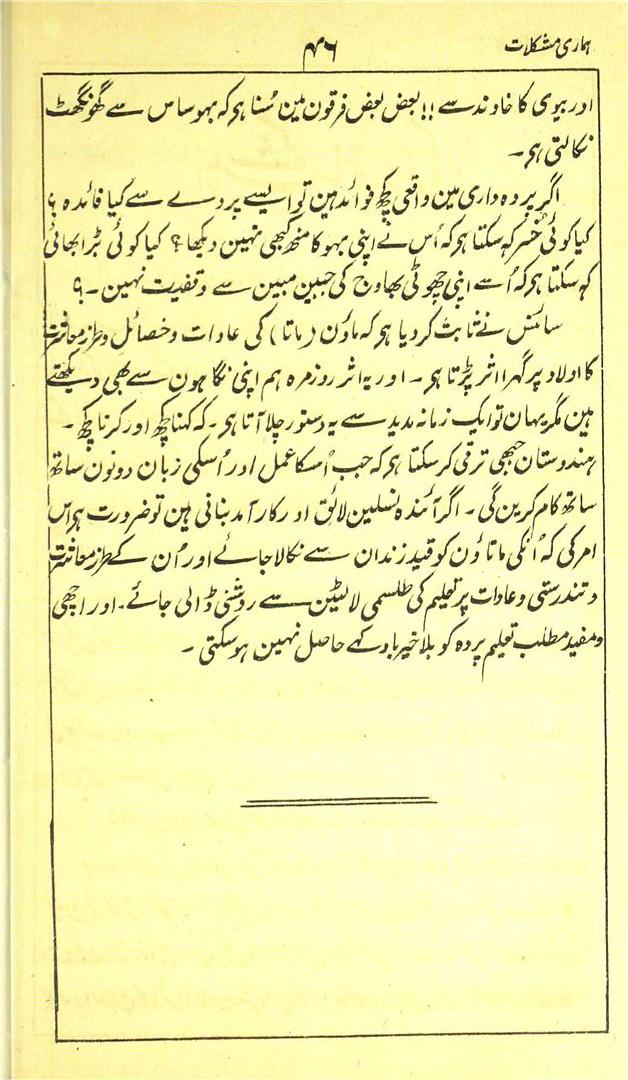 ہماری مشکلات
۴۶
اور بیوی کا خاوند سے !! بعض بعض فرقون مین سُنا ہر کہ بہو ساس سے گھونگھٹ
نکالتی ہر ۔
اگر پردہ داری مین واقعی کچھ فوائد ہین تو ایسے پردے سے کیا فائدہ ؟
کیا کوئی خسر کہ سکتا ہر کہ اُس نے اپنی بہو کا منھ کبھی نہین دیکھا ؟ کیا کوئی بڑا بھائی
کہ سکتا ہر کہ اُسے اپنی چھوٹی بھاوج کی جبین مبین سے وقفیت نہین ۔ ؟
سائنس نے ثابت کر دیا ہر کہ ماؤن (ماتا) کی عادات وخصائل وطرز معاشرت
کا اولاد پر گہرا اثر پڑتا ہر ۔ اور یہ اثر روزمرہ ہم اپنی نگاہون سے بھی دیکھتے
ہین مگر یہان تو ایک زمانہ مدید سے یہ دستور چلا آتا ہر ۔ کہ کہنا کچھ اور کرنا کچھ ۔
ہندوستان جبھی ترقی کر سکتا ہر کہ جب اُسکا عمل اور اُسکی زبان دونون ساتھ
ساتھ کام کرین گی ۔ اگر آئندہ نسلین لائق اور کارآمد بنانی ہین تو ضرورت ہر اس
امر کی کہ اُنکی ماتاؤن کو قید زندان سے نکالا جائے اور اُن کے طرز معاشرت
وتندرستی وعادات پر تعلیم کی طلسمی لالٹین سے روشنی ڈالی جائے ۔ اور اچھی
ومفید مطلب تعلیم پردہ کو بلا خیرباد کہے حاصل نہین ہوسکتی ۔